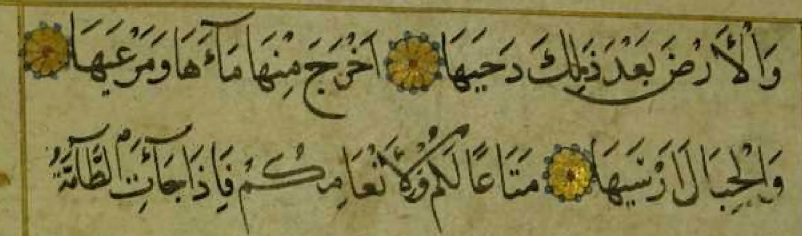 وَالْأَرْضَ بَعْدَ ذَلِكَ دَحَيهَا اَخْرَجَ مِنْهَا مَآءَهَا وَمَرْعَيهَا
وَالْجِبَالَ اَرْسَيهَا مَتَاعًا لَكُمْ وَلِأَنْعَامِكُمْ فَاِذَا جَآئَتِ الطَّآمَّةُ